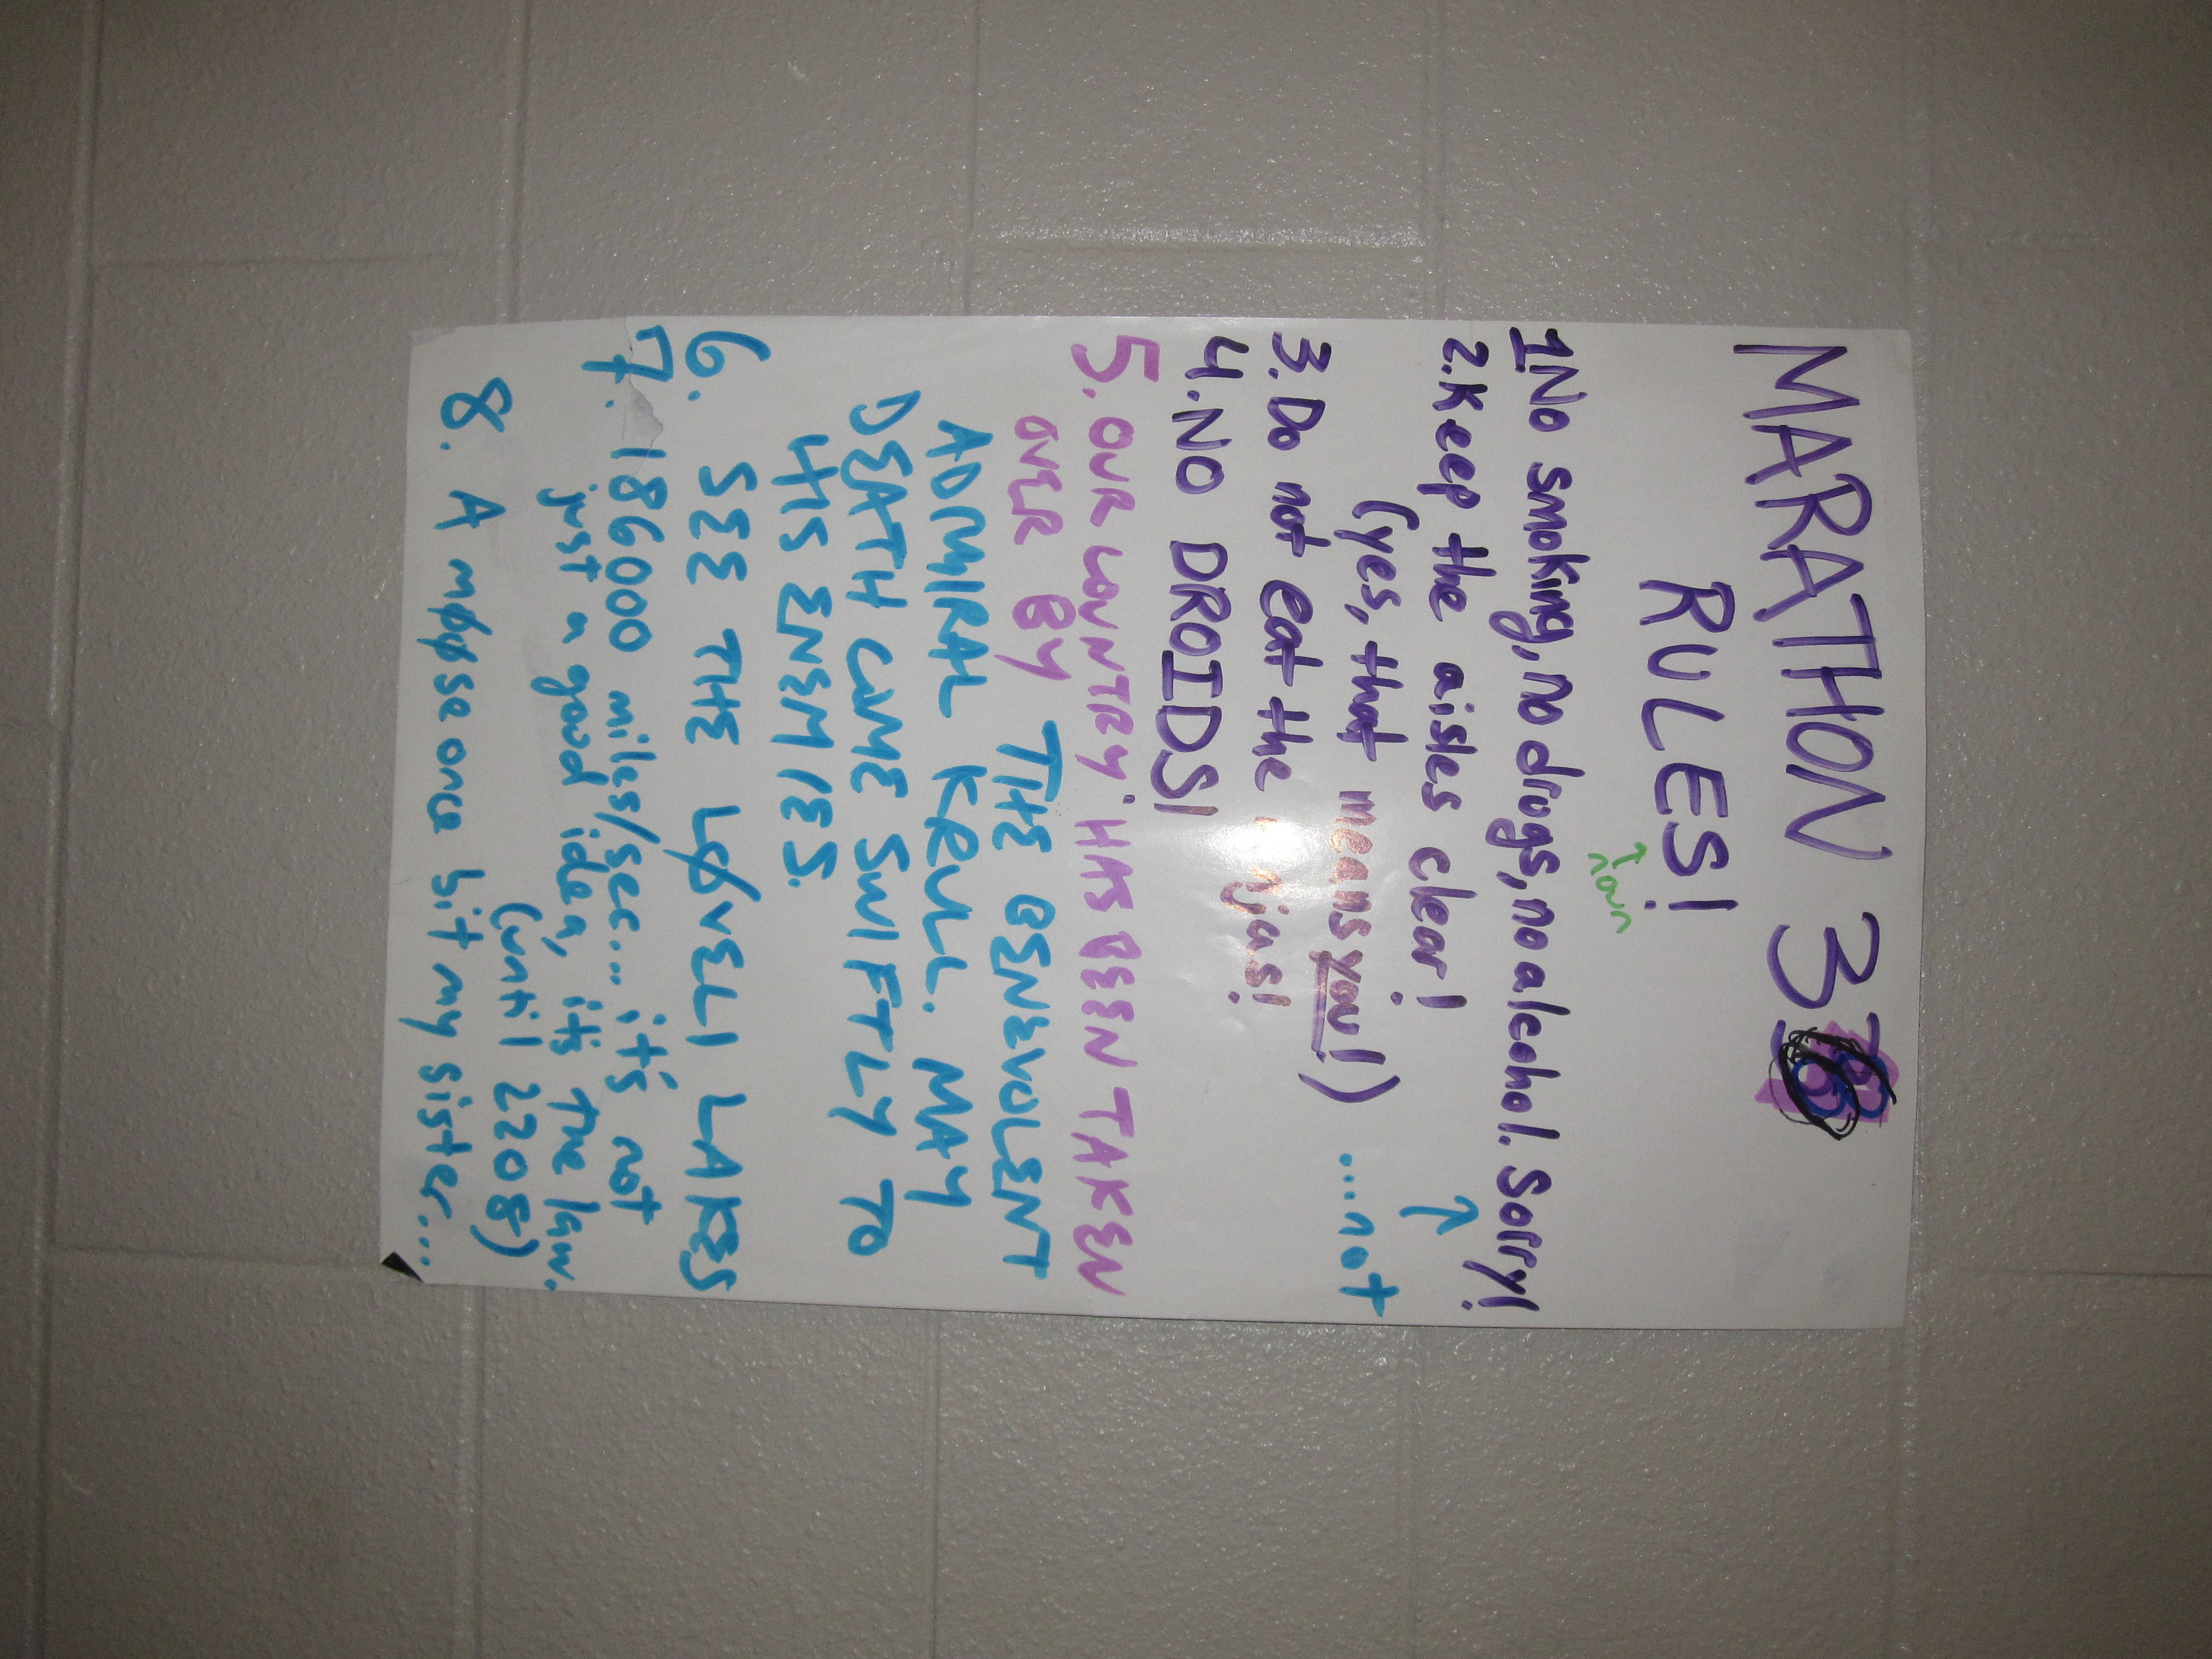 MARATHON 3
RULES!
1 No smoking, no drugs, no alcohol. Sorry!
2. Keep the aisles clear!
(yes, that means you!) ...not
3. Do not eat the
4. NO DROIDS!
5. OUR COUNTRY HAS BEEN TAKEN
OVER BY THE BENEVOLENT
ADMIRAL KRULL. MAY
DEATH COME SWIFTLY TO
HIS ENEMIES.
6. SEE THE LØVELI LAKES
7. 186000 miles/sec... it's not
just a good idea, it's the law.
(until 2208)
8. A møøse once bit my sister...